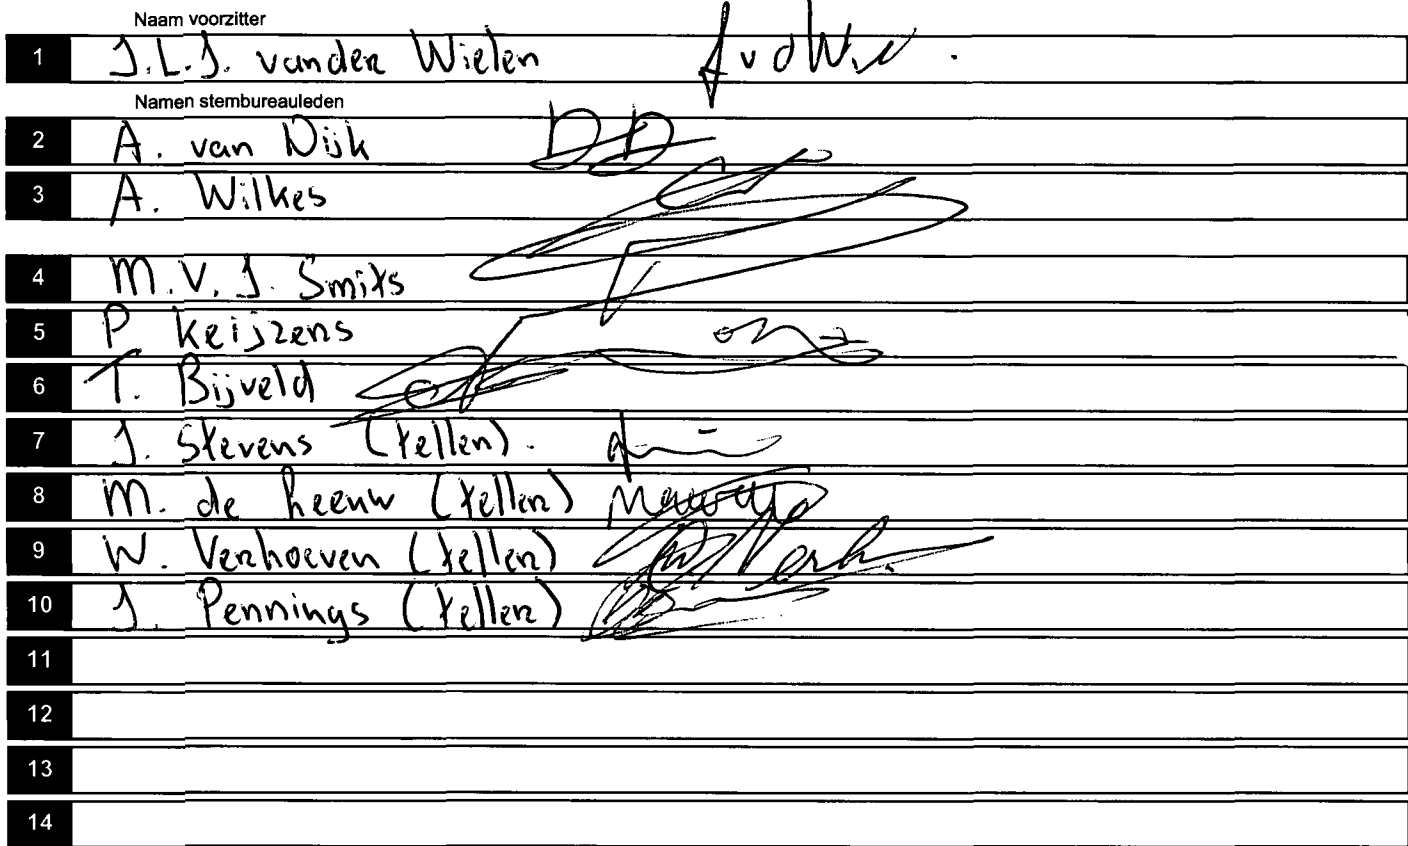 Naam voorzitter
1 J.L.J. van der Wielen
Namen stembureauleden
2 A. van Dijk
3 A. Wilkes
4 M.V.J. Smits
5 P Keijzers
6 T. Bijveld
7 J. Stevens (teller).
8 M. de Leeuw (teller)
9 W. Verhoeven (teller)
10 J. Pennings (teller)
11
12
13
14